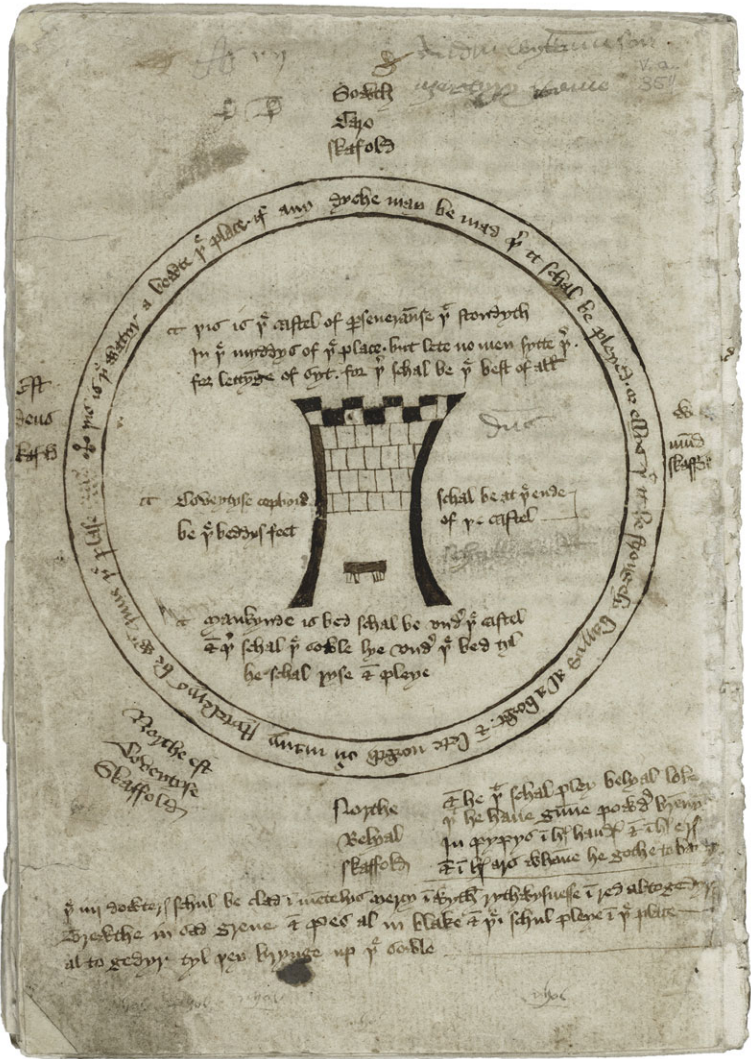 Sowth
Caro
skafold
þis is þe watyr a bowte þe place. if any dyche may be mad þer it schal be pleyed. or ellys þat it be strongely barryd al a bowt. & lete nowth ouyr many stytelerys be wt inne þe plase
þis is þe castel of perseueraunse þat stondyth
In þe myddys of þe place. but lete no men sytte þer.
for lettynge of syt. for þer schal be þe best of all
Coveytyse copbord
be þe beddys feet
schal be at þe ende
of þe castel
Mankynde is bed schal be vndyr þe castel
& þer schal þe sowle lye vndyr þe bed tyl
he schal ryse & pleye
Est
deus
skafold
W
mundus
skaffold
Northe est
Coveytyse
Skaffold
Northe
Belyal
skaffold
& he þat schal pley belyal loke
þat he haue gunne powdyr brennyng
In pypys in hys handis & in hys erys
& in hys ars whanne he gothe to batayl
þe iiij dowterys schul be clad in mentelys Mercy in wyth rythwysnesse in red altogedyr
Trewthe in sad grene & Pes al in blake & þei schul pleye in þe place
al to gedyr tyl þey brynge up þe sowle